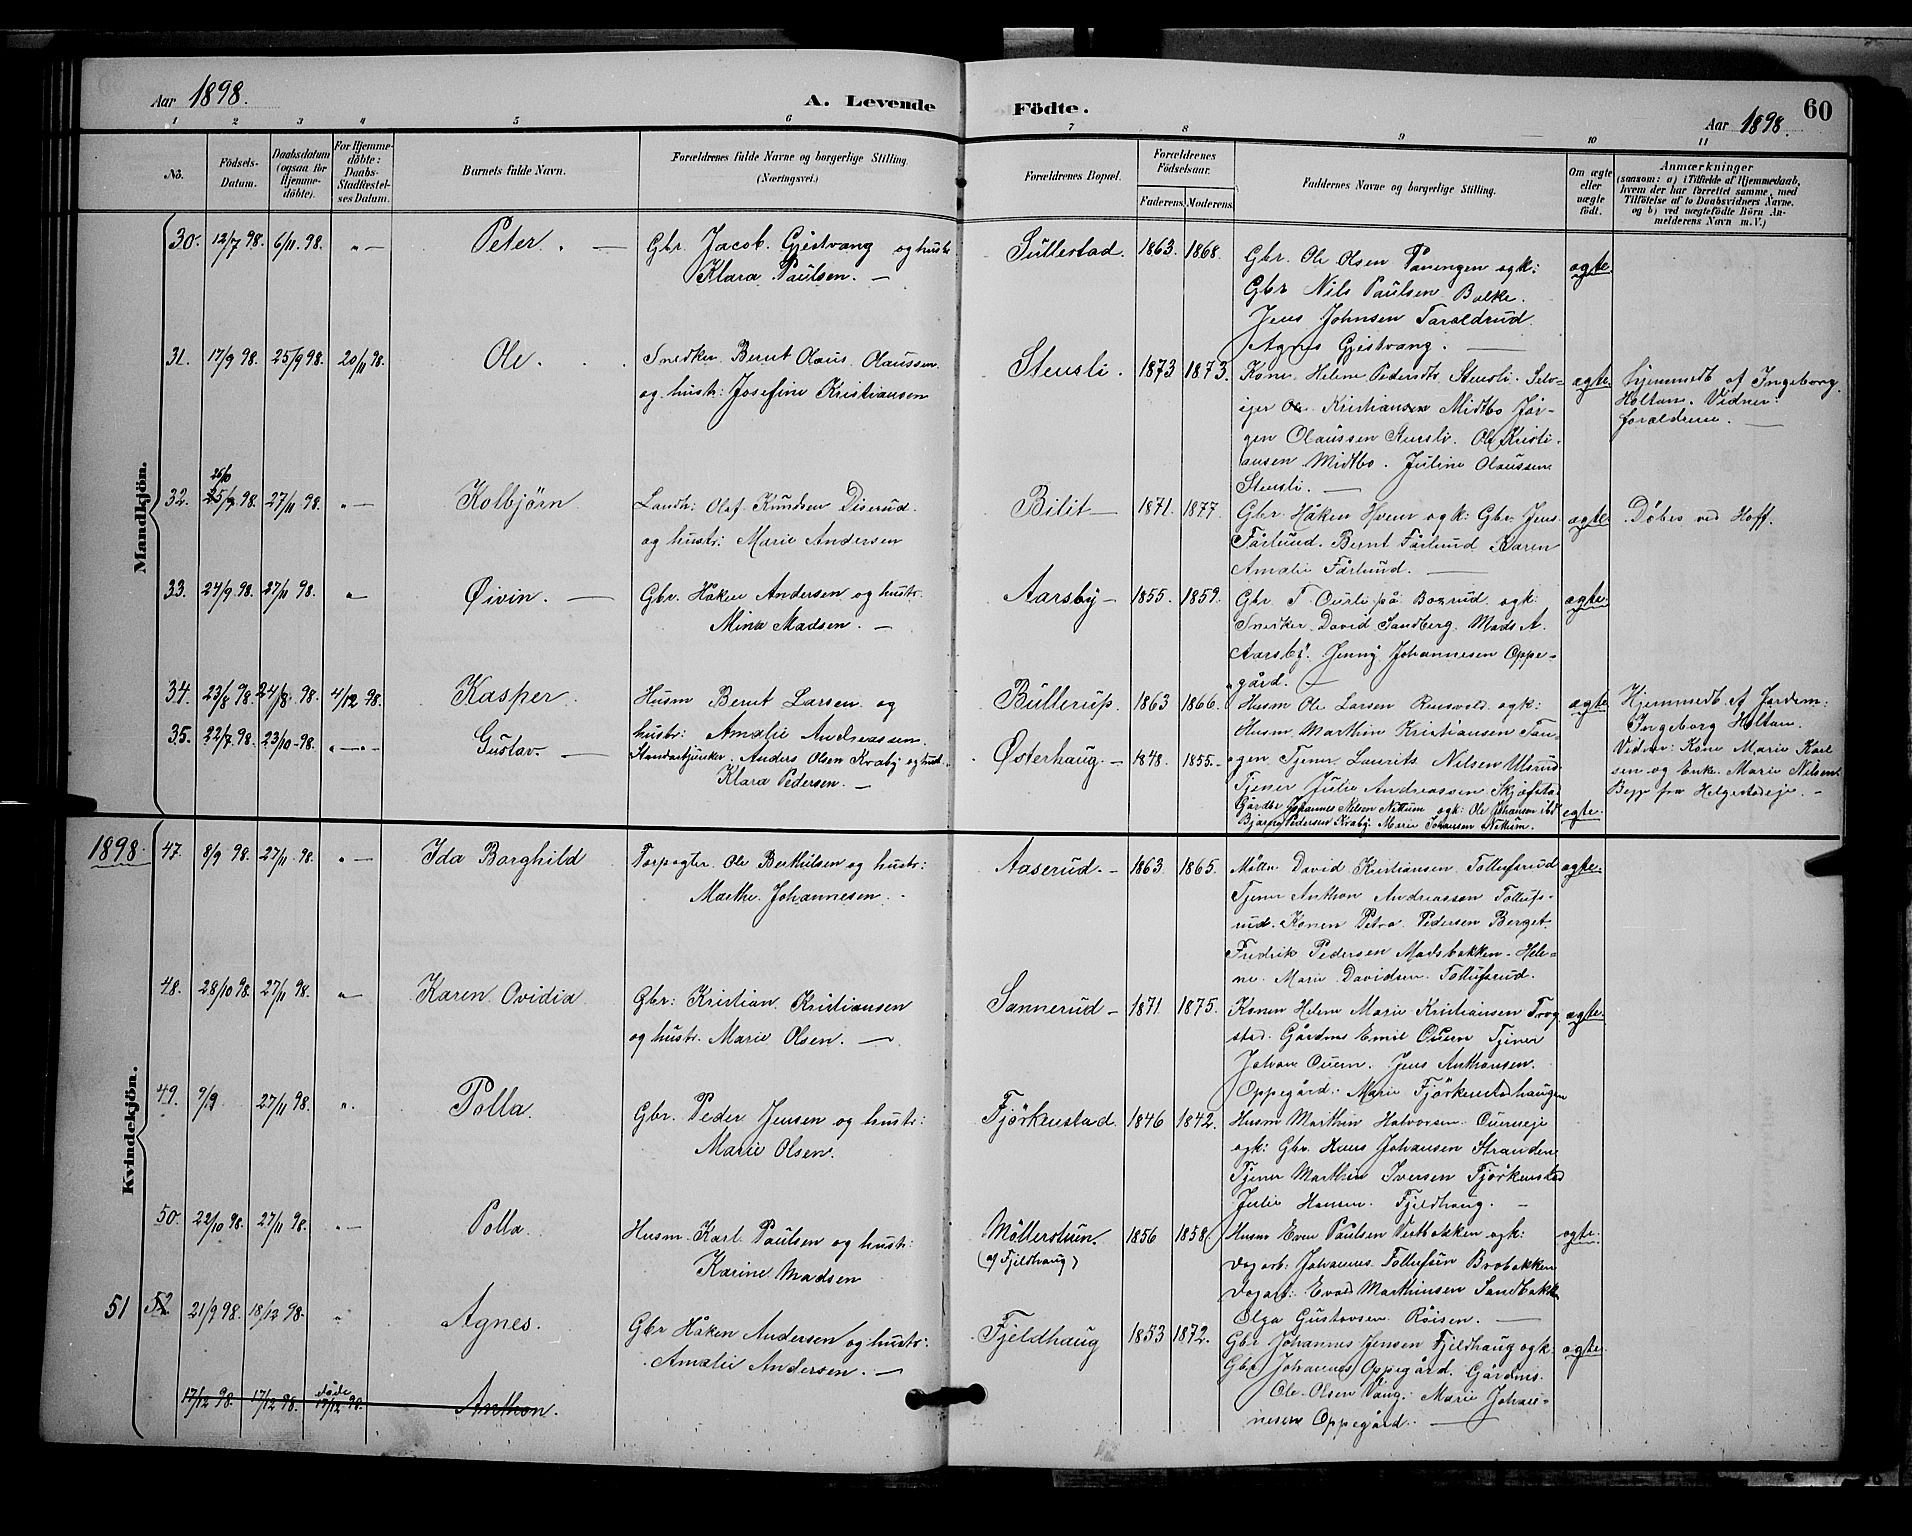 Aar 1898.
A. Levende Födte.
Aar 1898.
60
1 2 3 4 5 6 7 8 9 10 11
No.
Födsels-Datum.
Daabsdatum (ogsaa for Hjemmedöbte).
For Hjemmedöbte: Daabs-Stadfæstelses Datum.
Barnets fulde Navn.
Forældrenes fulde Navne og borgerlige Stilling. (Næringsvei.)
Forældrenes Bopæl.
Forældrenes Födselsaar.
Faderens. Moderens.
Faddernes Navne og borgerlige Stilling.
Om ægte eller uægte födt.
Anmærkninger
(saasom: a) i Tilfælde af Hjemmedaab, hvem der har forrettet samme, med Tilföielse af to Daabsvidners Navne. og b) ved uægtefödte Börn Anmelderens Navn m. V.)
Mandkjön.
30. 12/7 98. 6/11 98. „ — Peter. —
Gbr. Jacob Gjestvang og hustr
Klara Paulsen. —
Sullestad. 1863. 1868.
Gbr. Ole Olsen Paningen og k:
Gbr Nils Paulsen Balke.
Jens Johnsen Taraldrud.
Agnes Gjestvang. —
ægte.
31. 17/9 98. 25/9 98. 20/11 98. Ole.
Snedker Bernt Olaus Olaussen
og hustr: Josefine Kristiansen
Stensli. 1873 1873.
Kone Helene Pedersdtr Stensli. Selv-
eier Ole Kristiansen Midtbo Jör-
gen Olaussen Stensli. Ole Kristi-
ansen Midtbo. Juline Olaussen
Stensli. —
ægte.
Hjemmedt af Ingeborg
Holtan. Vidner:
forældrene. —
32. 25/9 98. 27/11 98. „ — Kolbjörn
Landh: Olaf Knudsen Diserud
og hustr: Marie Andersen
Bilit — 1871. 1877.
Gbr. Håken Hveem og k: Gbr Jens
Fårlund. Bernt Fårlund Karen
Amalie Fårlund. —
ægte
Döbes ved Hoff.
33. 24/9 98. 27/11 98. „ Øivin. —
Gbr. Håken Andersen og hustr.
Mina Madsen. —
Aarsby — 1855. 1859.
Gbr T. Ourli på Bøxrud og k:
Snedker David Sandberg. Mads A.
Aarsby. Jenny Johannesen Oppe-
gård. —
ægte.
34. 23/8 98. 24/8 98. 4/12 98. Kasper
Husm Bernt Larsen og
hustr: Amalie Andreassen.
Bullerup. 1863 1866.
Husm Ole Larsen Rensvold og k:
Husm Marthin Kristiansen Tan-
gen Tjener Laurits Nilsen Ulsrud
Tjener Julie Andreassen Skjæfstad
ægte
Hjemmedt af Jordem:
Ingeborg Holtan
Vidner: Kone Marie Karl
sen og Enke Marie Nilsen
Bepp fra Helgestadeje. —
35. 22/7 98. 23/10 98. „ — „ — Gustav. —
Standartjunker Anders Olsen Kraby og hust
Klara Pedersen. —
Østerhaug. — 1848. 1855.
Gårdbr Johannes Nilsen Nettum og k: Ole Johansen ibd
Bjarne Pedersen Kraby Marie Johansen Nettum.
ægte.
Kvindekjön.
1898. 47. 8/9 98. 27/11 98. „ — Ida Borghild
Forpagter Ole Berthilsen og hustr:
Marthe Johannesen.
Aaserud. — 1863 1865.
Möller David Kristiansen Tollufsrud
Tjener Anthon Andreassen Tollufs-
rud. Konen Petra Pedersen Berget.
Fredrik Pedersen Madsbakken. Hele-
ne Marie Davidsen Tollufsrud.
ægte.
48. 28/10 98. 27/11 98. „ Karen Ovidia
Gbr: Kristian Kristiansen
og hustr. Marie Olsen. —
Sannerud — 1871. 1875.
Konen Helene Marie Kristiansen Trog
stad. Gårdm Emil Ouern Tjener
Johan Ouern. Jens Anthonsen
Oppegård. Marie Fjörkenstadhaugen
ægte.
49. 9/9 27/11 98. „ Polla.
Gbr. Peder Jensen og hustr:
Marie Olsen.
Fjörkenstad. 1846 1842.
Husm Marthin Halvorsen Ouerneje
og k: Gbr. Hans Johansen Stranden
Tjener Marthin Iversen Fjörkenstad
Julie Hansen Fjeldhaug. —
50. 22/10 98. 27/11 98. „ — Polla
Husm Karl Paulsen og hustr:
Karine Madsen
Möllerstuen.
(af Fjeldhaug)
1856 1858
Husm Even Paulsen Vestbakken og k:
Dagarb: Johannes Tollufsen Brobakken
Dagarb: Evald Marthinsen Sandbakk
Olga Gustavsen Röisen. —
ægte.
51 52 21/9 98. 18/12 98. „ Agnes.
Gbr Håken Andersen og hustr:
Amalie Andersen. —
Fjeldhaug 1853 1872.
Gbr Johannes Jensen Fjeldhaug og k:
Gbr Johannes Oppegård. Gårdms.
Ole Olsen Vang. Marie Johan-
nesen Oppegård. —
ægte
17/12 98. 17/12 98. döde 17/12 98. Anthon.